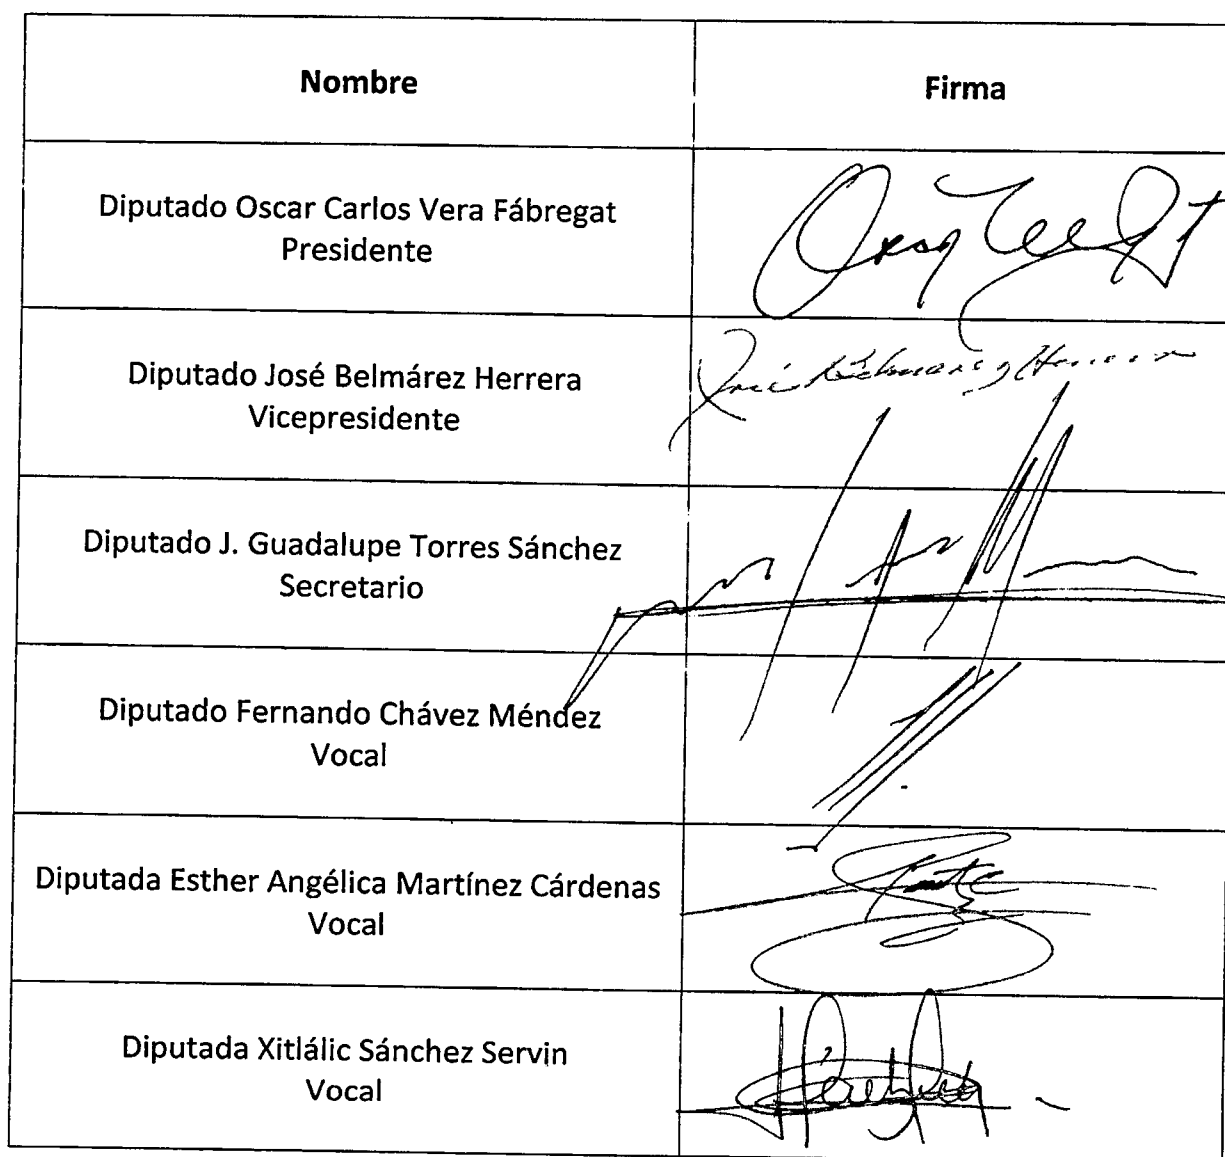 Nombre
Firma
Diputado Oscar Carlos Vera Fábregat
Presidente
Diputado José Belmárez Herrera
Vicepresidente
José Belmarez Herrera
Diputado J. Guadalupe Torres Sánchez
Secretario
Diputado Fernando Chávez Méndez
Vocal
Diputada Esther Angélica Martínez Cárdenas
Vocal
Diputada Xitlálic Sánchez Servin
Vocal